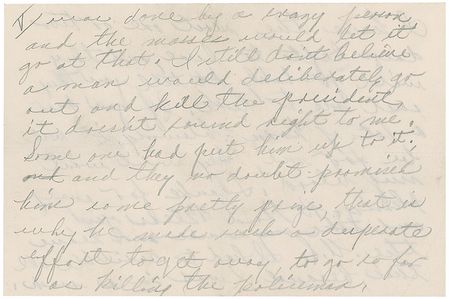 was done by a crazy person
and the masses would let it
go at that. I still don't believe
a man would deliberately go
out and kill the president,
it doesn't sound right to me.
Some one had put him up to it.
and they no doubt promised
him some pretty price, that is
why he made such a desperate
effort to get away to go so far
as killing the policeman.